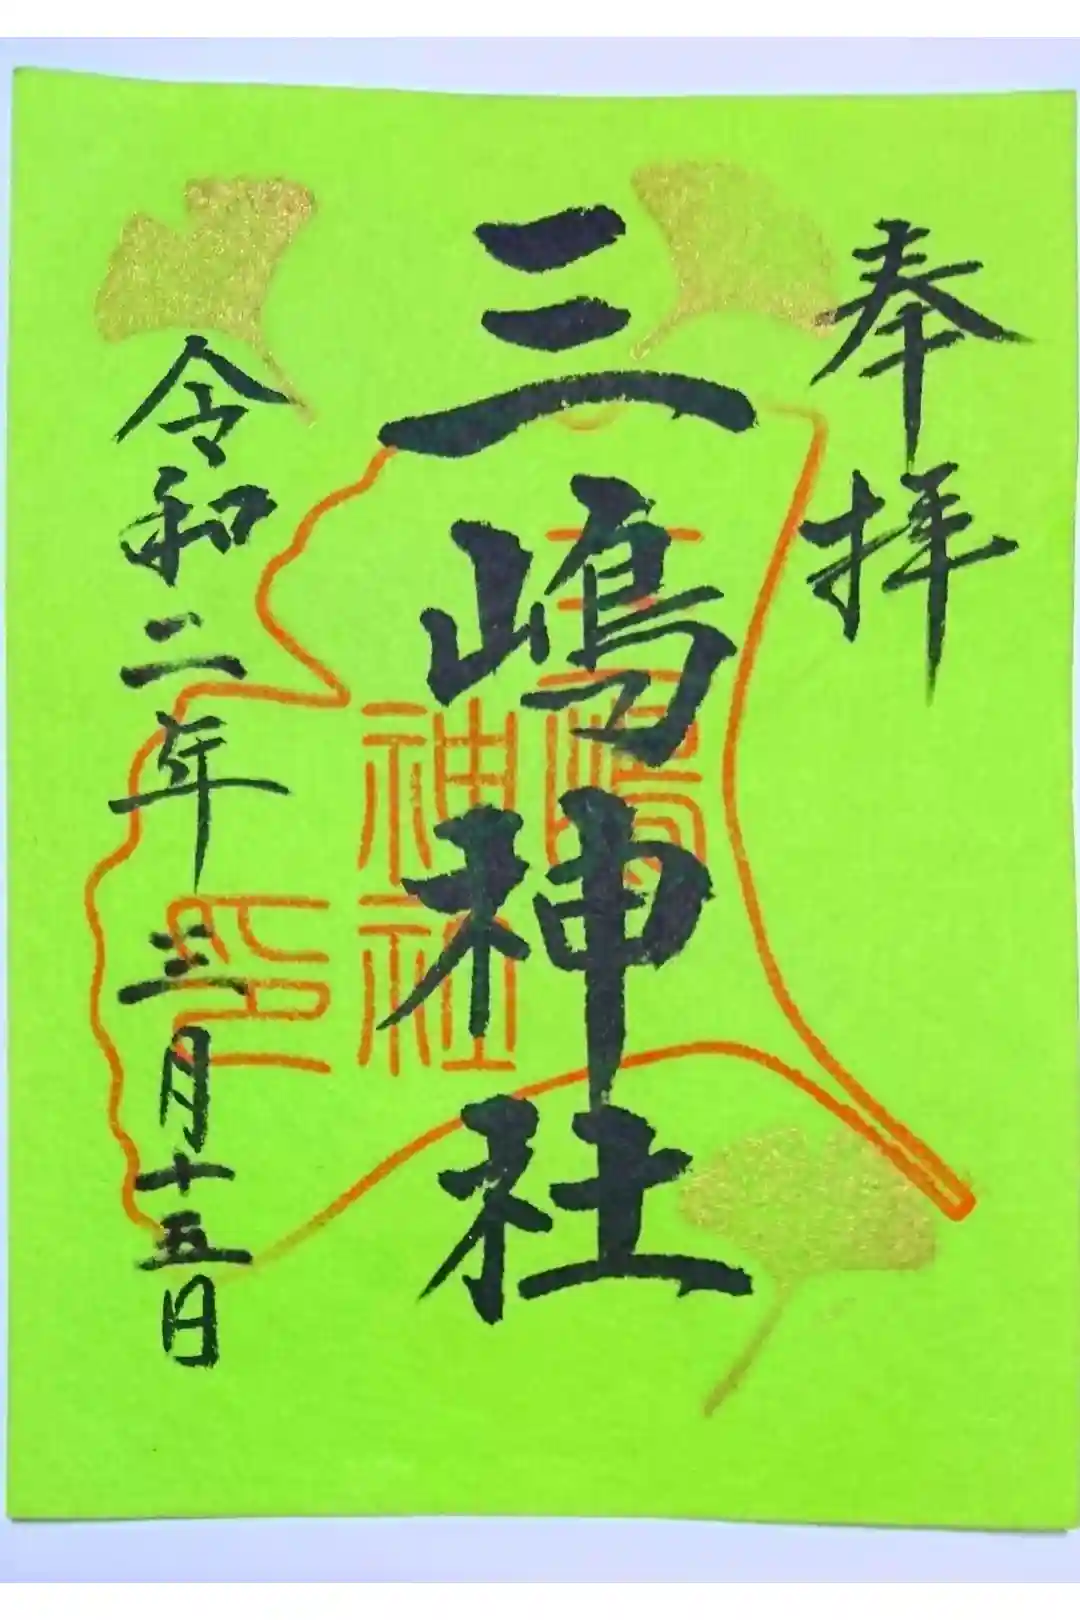 奉拝
三嶋神社
三嶋
神社
印
令和二年三月十五日